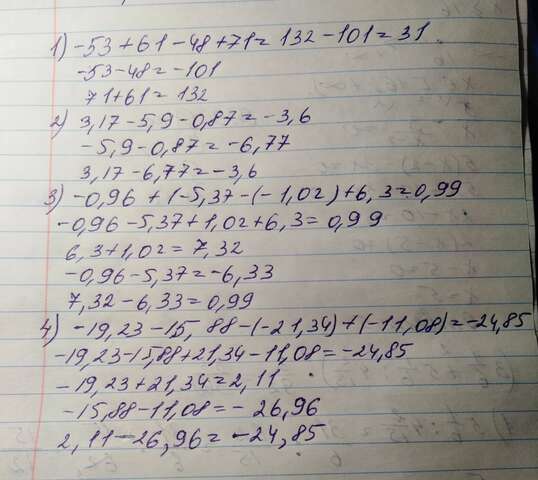 1) -53+61-48+71=132-101=31
-53-48=-101
71+61=132
2) 3,17-5,9-0,87=-3,6
-5,9-0,87=-6,77
3,17-6,77=-3,6
3) -0,96+(-5,37-(-1,02)+6,3=0,99
-0,96-5,37+1,02+6,3=0,99
6,3+1,02=7,32
-0,96-5,37=-6,33
7,32-6,33=0,99
4) -19,23-15,88-(-21,34)+(-11,08)=-24,85
-19,23-15,88+21,34-11,08=-24,85
-19,23+21,34=2,11
-15,88-11,08=-26,96
2,11-26,96=-24,85